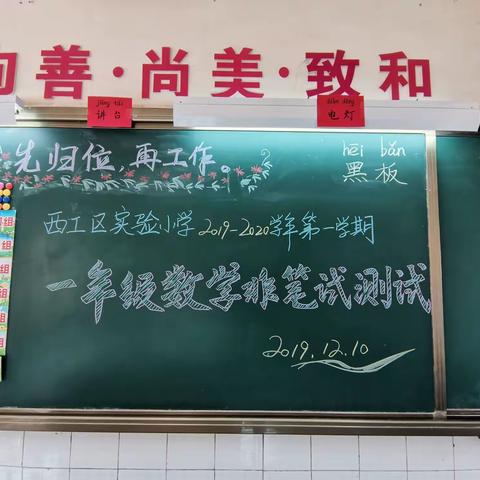 向善·尚美·致和
jiǎng tái
讲台
diàn dēng
电灯
先归位,再工作。
hēi bǎn
黑板
西工区实验小学2019-2020学年第一学期
一年级数学非笔试测试
2019.12.10
组
组
组
组
组